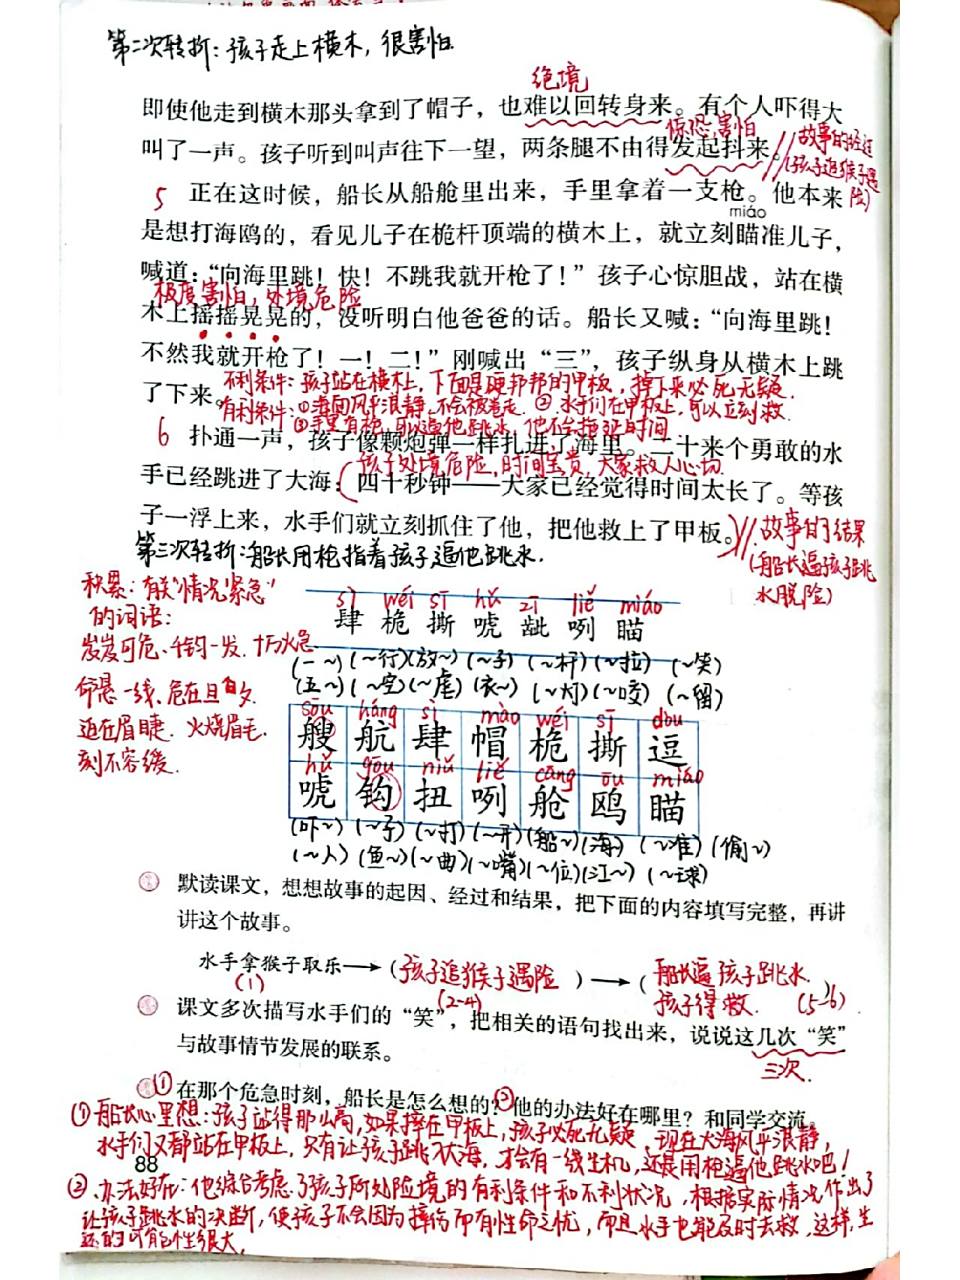 第二次转折：孩子走上横木，很害怕
绝境
即使他走到横木那头拿到了帽子，也难以回转身来。有个人吓得大
惊恐,害怕
叫了一声。孩子听到叫声往下一望，两条腿不由得发起抖来。
故事的经过
(孩子追猴子遇
险)
5 正在这时候，船长从船舱里出来，手里拿着一支枪。他本来
miáo
是想打海鸥的，看见儿子在桅杆顶端的横木上，就立刻瞄准儿子，
喊道：“向海里跳！快！不跳我就开枪了！”孩子心惊胆战，站在横
极度害怕，处境危险
木上摇摇晃晃的，没听明白他爸爸的话。船长又喊：“向海里跳！
不然我就开枪了！一！二！”刚喊出“三”，孩子纵身从横木上跳
不利条件：孩子站在横木上，下面是硬邦邦的甲板，掉下来必死无疑.
了下来。
有利条件：①海面风平浪静，不会被卷走. ②水手们在甲板上，可以立刻救.
③手里有枪，可以逼他跳水，他不会拖延时间
6 扑通一声，孩子像颗炮弹一样扎进了海里。二十来个勇敢的水
孩子处境危险，时间宝贵，大家救人心切.
手已经跳进了大海：四十秒钟——大家已经觉得时间太长了。等孩
子一浮上来，水手们就立刻抓住了他，把他救上了甲板。
故事的结果
(船长逼孩子跳
水脱险)
第三次转折：船长用枪指着孩子逼他跳水.
积累：有关“情况紧急”
的词语：
岌岌可危、千钧一发、十万火急
命悬一线、危在旦夕
迫在眉睫、火烧眉毛.
刻不容缓.
sì wéi sī hǔ zī liě miáo
肆 桅 撕 唬 龇 咧 瞄
(一~) (~行) (放~) (~子) (~杆) (~拉) (~笑)
(五~) (~空) (~虐) (衣~) (~灯) (~咬) (~留)
sōu háng sì mào wéi sī dòu
艘 航 肆 帽 桅 撕 逗
hǔ gōu niǔ liě cāng ōu miáo
唬 钩 扭 咧 舱 鸥 瞄
(吓~) (~子) (~打) (~开) (船~) (海~) (~准) (偷~)
(~人) (鱼~) (~曲) (~嘴) (~位) (江~) (~球)
默读课文，想想故事的起因、经过和结果，把下面的内容填写完整，再讲
讲这个故事。
水手拿猴子取乐→(孩子追猴子遇险)→(船长逼孩子跳水.
孩子得救.)
(1) (2-4) (5-6)
课文多次描写水手们的“笑”，把相关的语句找出来，说说这几次“笑”
与故事情节发展的联系。
三次.
①在那个危急时刻，船长是怎么想的？②他的办法好在哪里？和同学交流。
①船长心里想：孩子站得那么高，如果摔在甲板上，孩子必死无疑. 现在大海风平浪静，
水手们又都站在甲板上，只有让孩子跳下大海，才会有一线生机，还是用枪逼他跳水吧！
88
②办法好在：他综合考虑了孩子所处险境的有利条件和不利状况，根据实际情况作出了
让孩子跳水的决断，使孩子不会因为摔伤而有性命之忧，而且水手也能及时去救，这样，生
还的可能性很大.